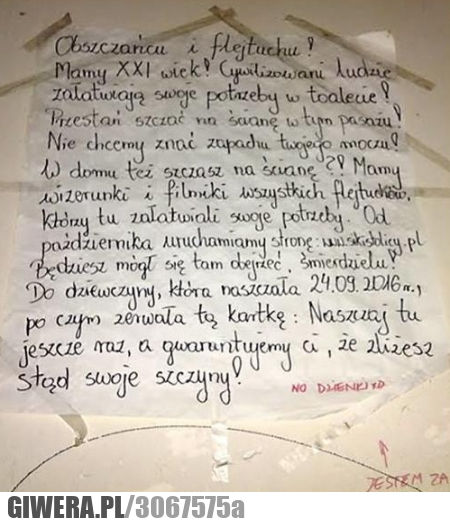 Obszczańcu i flejtuchu!
Mamy XXI wiek! Cywilizowani ludzie
załatwiają swoje potrzeby w toalecie!
Przestań szczać na ścianę w tym pasażu!
Nie chcemy znać zapachu twojego moczu!
W domu też szczasz na ścianę?! Mamy
wizerunki i filmiki wszystkich flejtuchów,
którzy tu załatwiali swoje potrzeby. Od
października uruchamiamy stronę:
Będziesz mógł się tam obejrzeć, śmierdzielu!
Do dziewczyny, która naszczała 24.09.2016r.,
po czym zerwała tą kartkę: Naszczaj tu
jeszcze raz, a gwarantujemy ci, że zliżesz
stąd swoje szczyny!
NO DZIENKI XD
JESTEM ZA
GIWERA.PL/3067575a